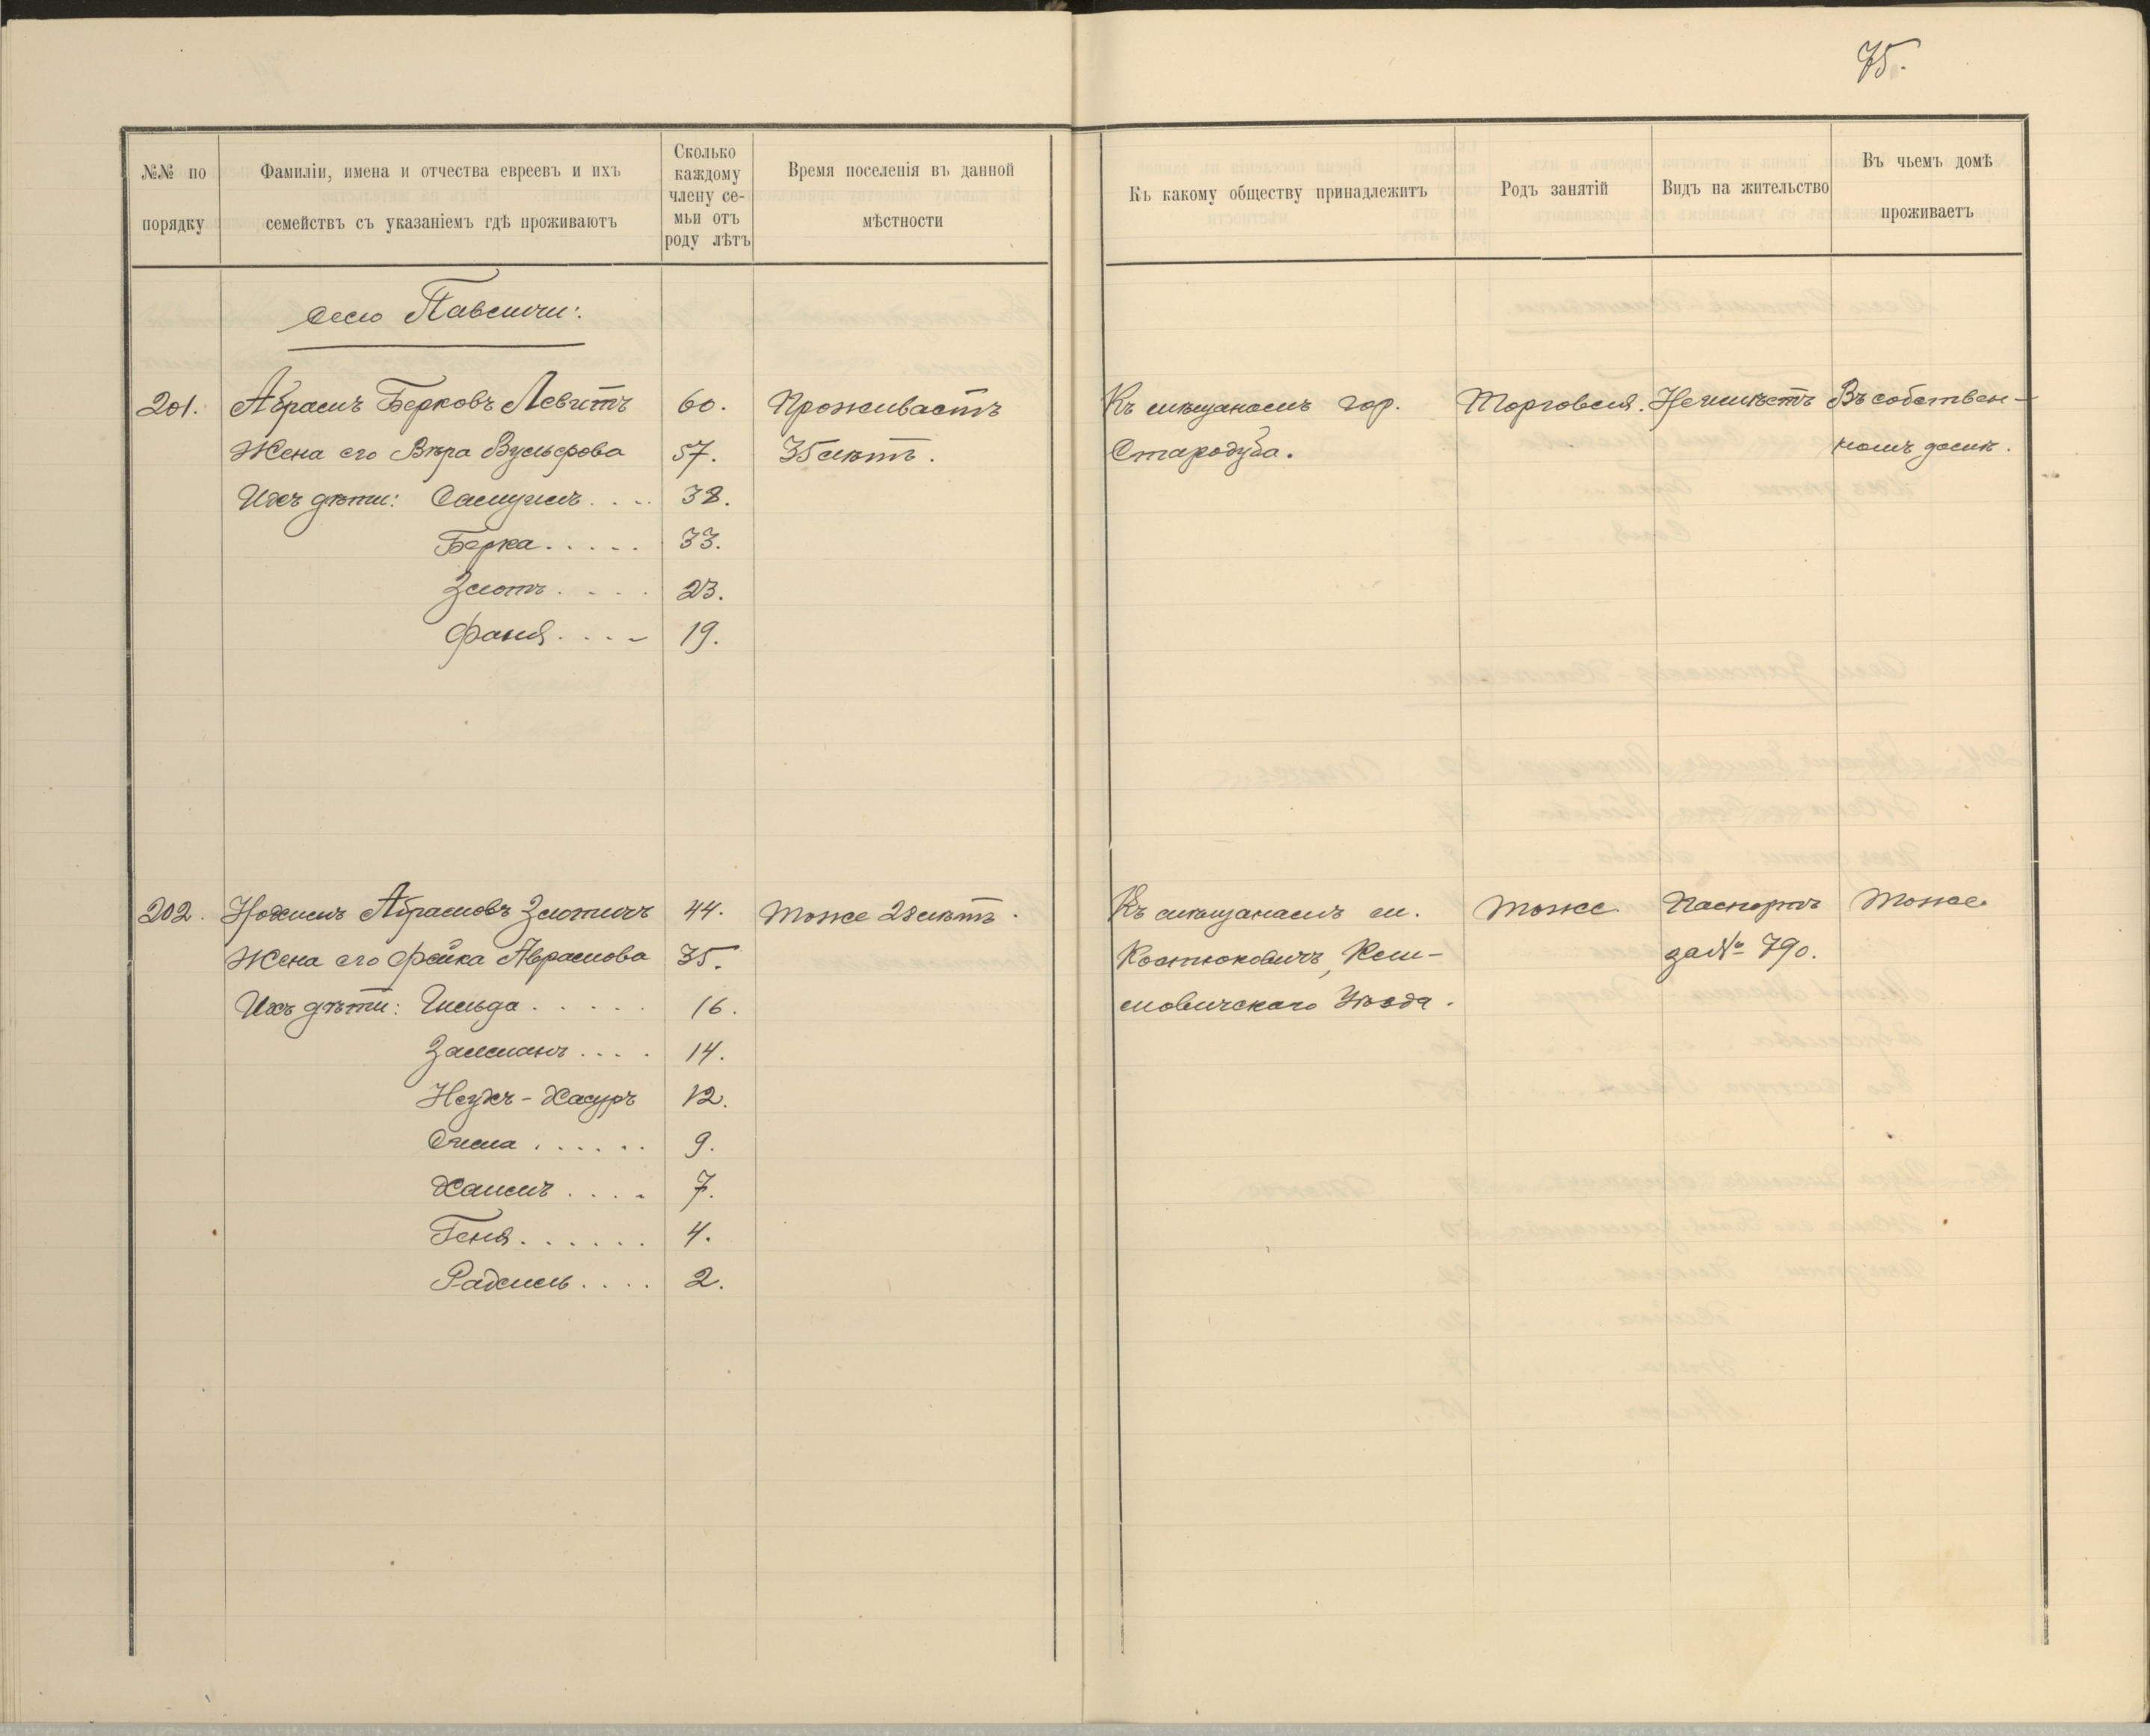 75.
№№ по порядку
Фамиліи, имена и отчества евреевъ и ихъ семействъ съ указаніемъ гдѣ проживаютъ
Сколько каждому члену семьи отъ роду лѣтъ
Время поселенія въ данной мѣстности
Къ какому обществу принадлежитъ
Родъ занятій
Видъ на жительство
Въ чьемъ домѣ проживаетъ
село Павличи:
201. Абрамъ Берковъ Левитъ 60. Проживаетъ Къ мѣщанамъ гор. Торговля. Неимѣетъ Въ собствен-
Жена его Вѣра Вульфова 57. 35 лѣтъ. Стародуба. номъ домѣ.
Ихъ дѣти: Самуилъ.... 38.
Берка..... 33.
Злотъ.... 23.
Фаня.... 19.
202. Нохимъ Абрамовъ Злотинъ 44. Тоже 28 лѣтъ. Къ мѣщанамъ м. Тоже Паспортъ Тоже.
Жена его Фейка Аврамова 35. Костюковичъ, Кли- за № 790.
Ихъ дѣти: Гильда..... 16. мовичскаго Уѣзда.
Залманъ.... 14.
12.
9.
Хаимъ.... 7.
Геня...... 4.
Рахиль.... 2.